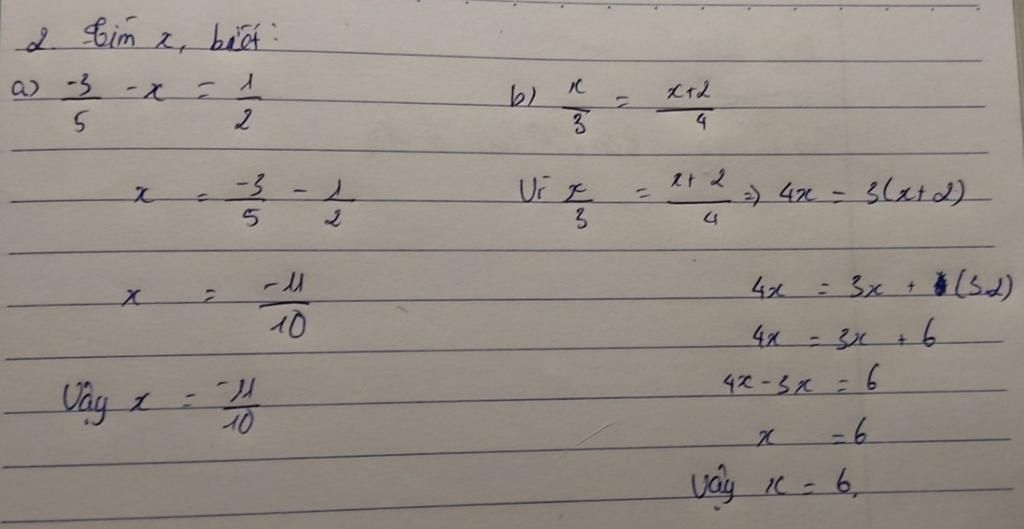 2. Tìm x, biết:
a) -3/5 - x = 1/2
x = -3/5 - 1/2
x = -11/10
Vậy x = -11/10
b) x/3 = x+2/4
Vì x/3 = x+2/4 => 4x = 3(x+2)
4x = 3x + (3.2)
4x = 3x + 6
4x - 3x = 6
x = 6
Vậy x = 6.